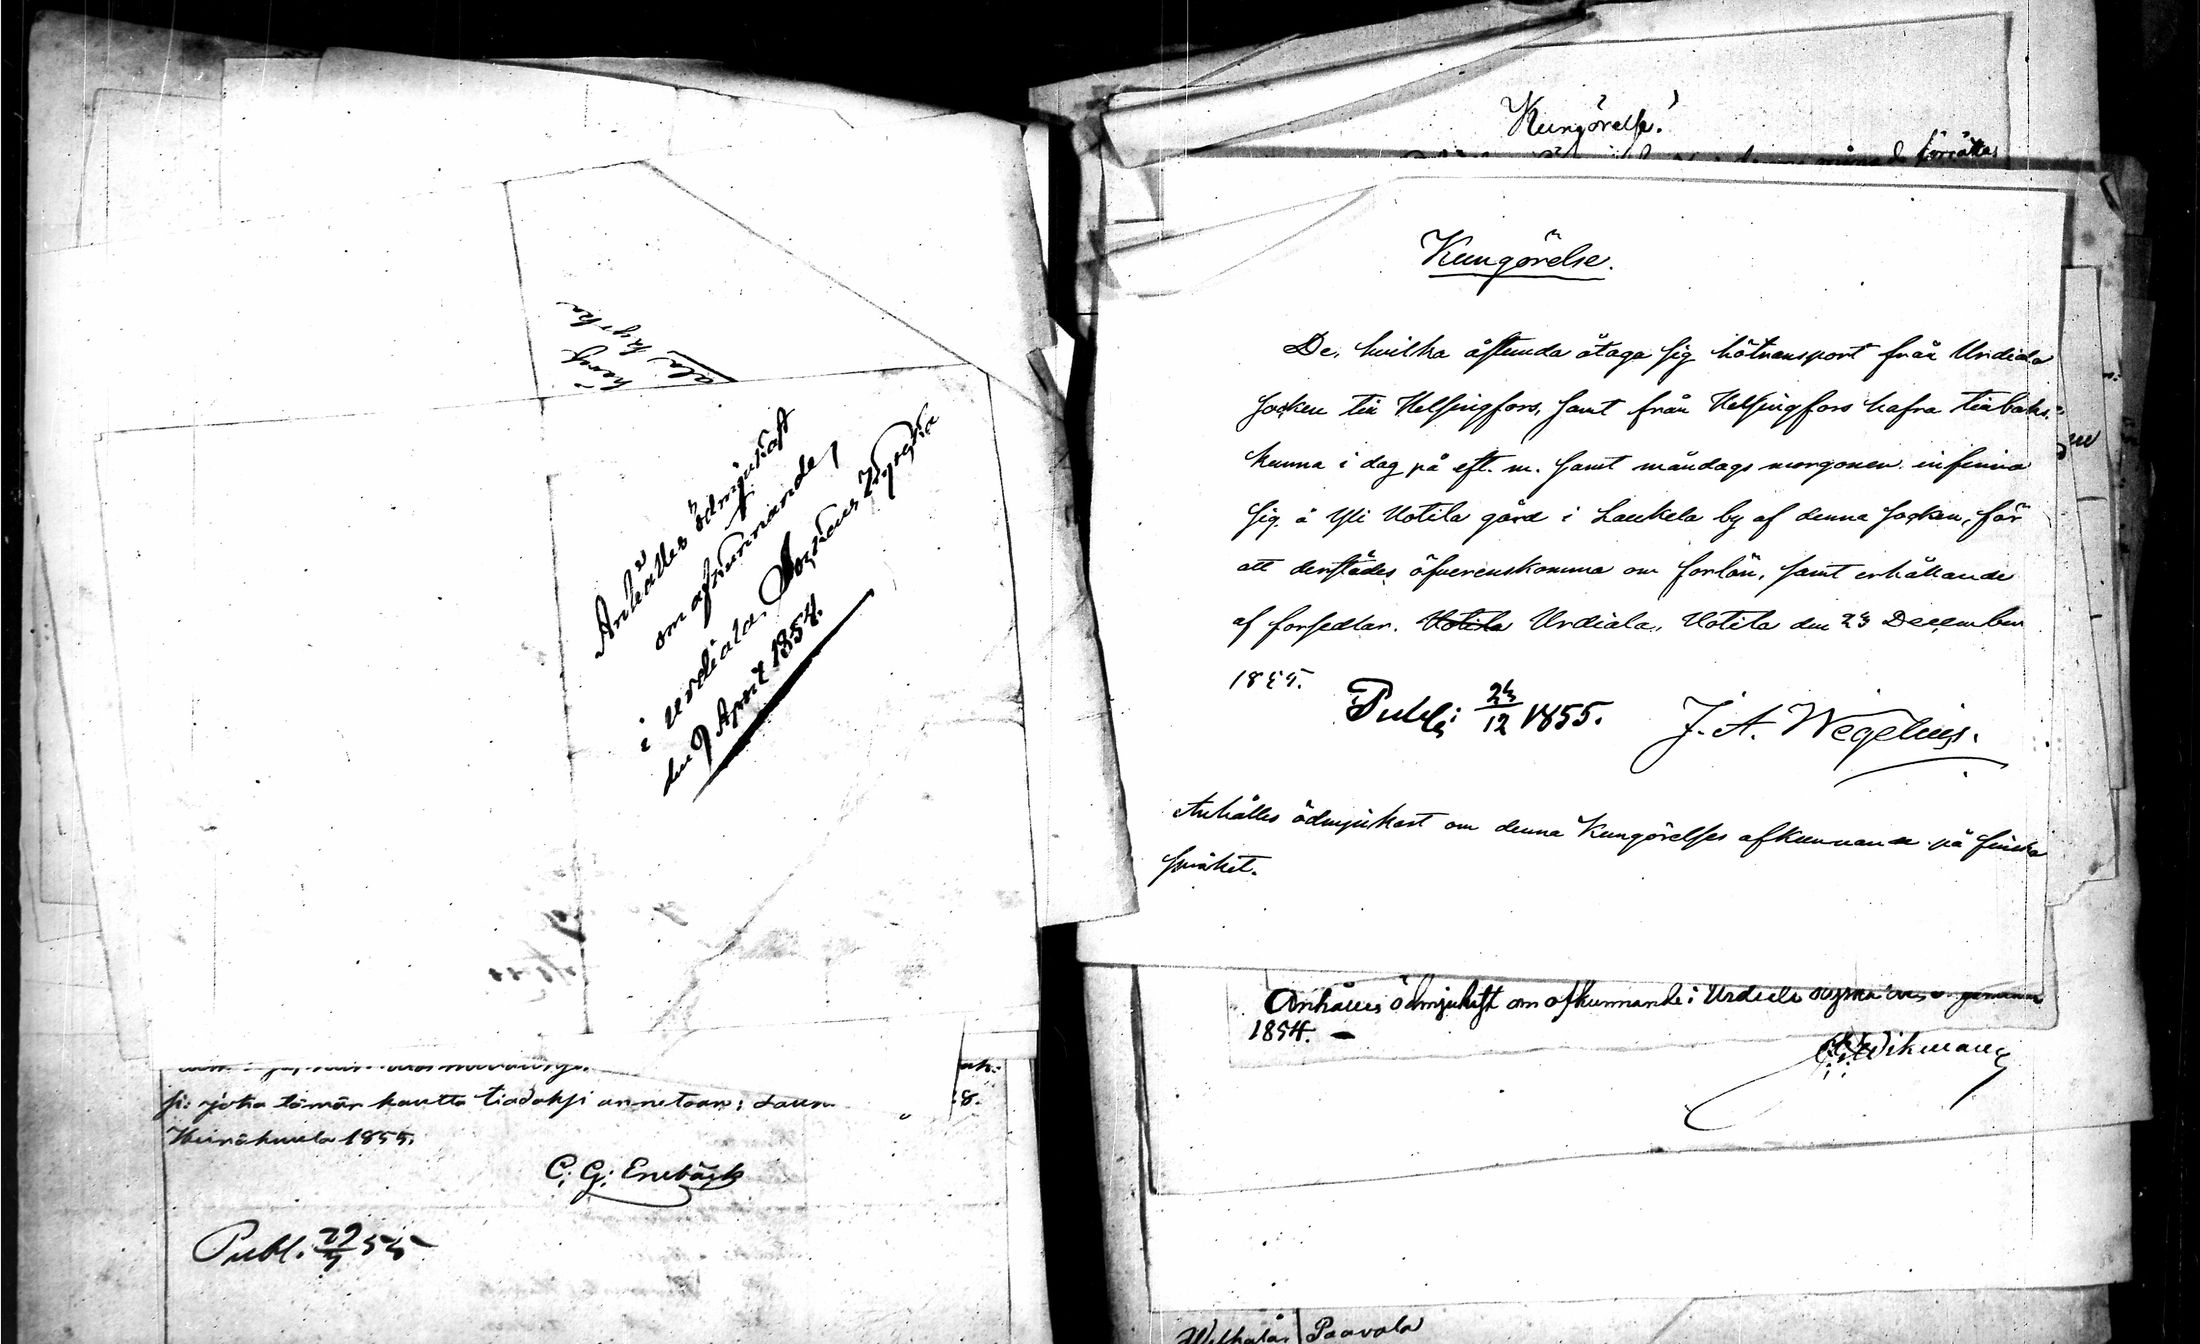 Anhålles ödmjukast
om afkunnande
i Urdiala Sockens Kyrka
den 9 April 1854.
si: joka tämän kautta tiedoksi annetaan:
Heinäkuula 1855.
C. G. Enebäck
Publ. 29/7 55
Kungörelse.
Kungörelse.
De, hvilka åstunda åtaga sig hötransport från Urdiala
socken till Helsingfors, samt från Helsingfors hafra tillbaka
kunna i dag på eft. m. samt måndags morgonen infinna
sig å Yli Uotila gård i Laukela by af denna socken, för
att derstädes öfverenskomma om forlön, samt erhållande
af forsedlar. Uotila Urdiala, Uotila den 23 December
1855.
Publ: 23/12 1855. J. A. Wegelius.
Anhålles ödmjukast om denna Kungörelses afkunnande på finska
språket.
Anhålles ödmjukast om afkunnande i Urdiala
1854. —
Wikman
Paavola